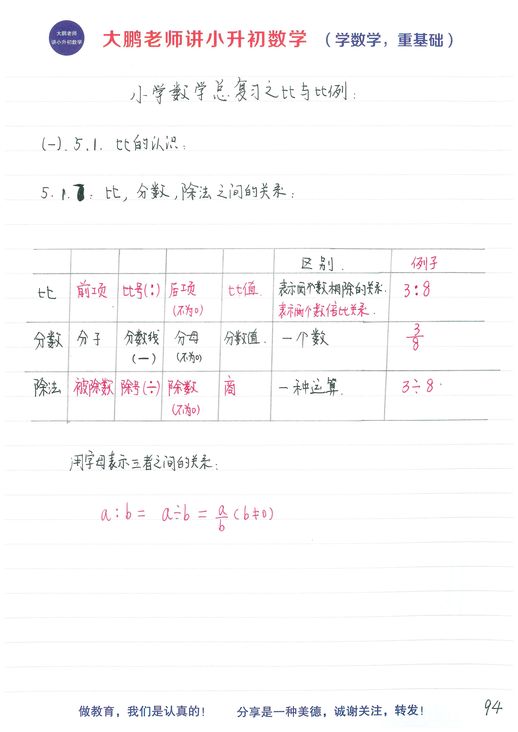 大鹏老师
讲小升初数学
大鹏老师讲小升初数学 (学数学，重基础)
小学数学总复习之比与比例：
(一).5.1. 比的认识：
5.1.1：比，分数，除法之间的关系：
区别. 例子
比 前项 比号(:) 后项(不为0) 比值. 表示两个数相除的关系. 表示两个数倍比关系. 3:8
分数 分子 分数线(—) 分母(不为0) 分数值. 一个数 3/8
除法 被除数 除号(÷) 除数(不为0) 商 一种运算. 3÷8.
用字母表示三者之间的关系：
a:b = a÷b = a/b (b≠0)
做教育，我们是认真的! 分享是一种美德，诚谢关注，转发! 94